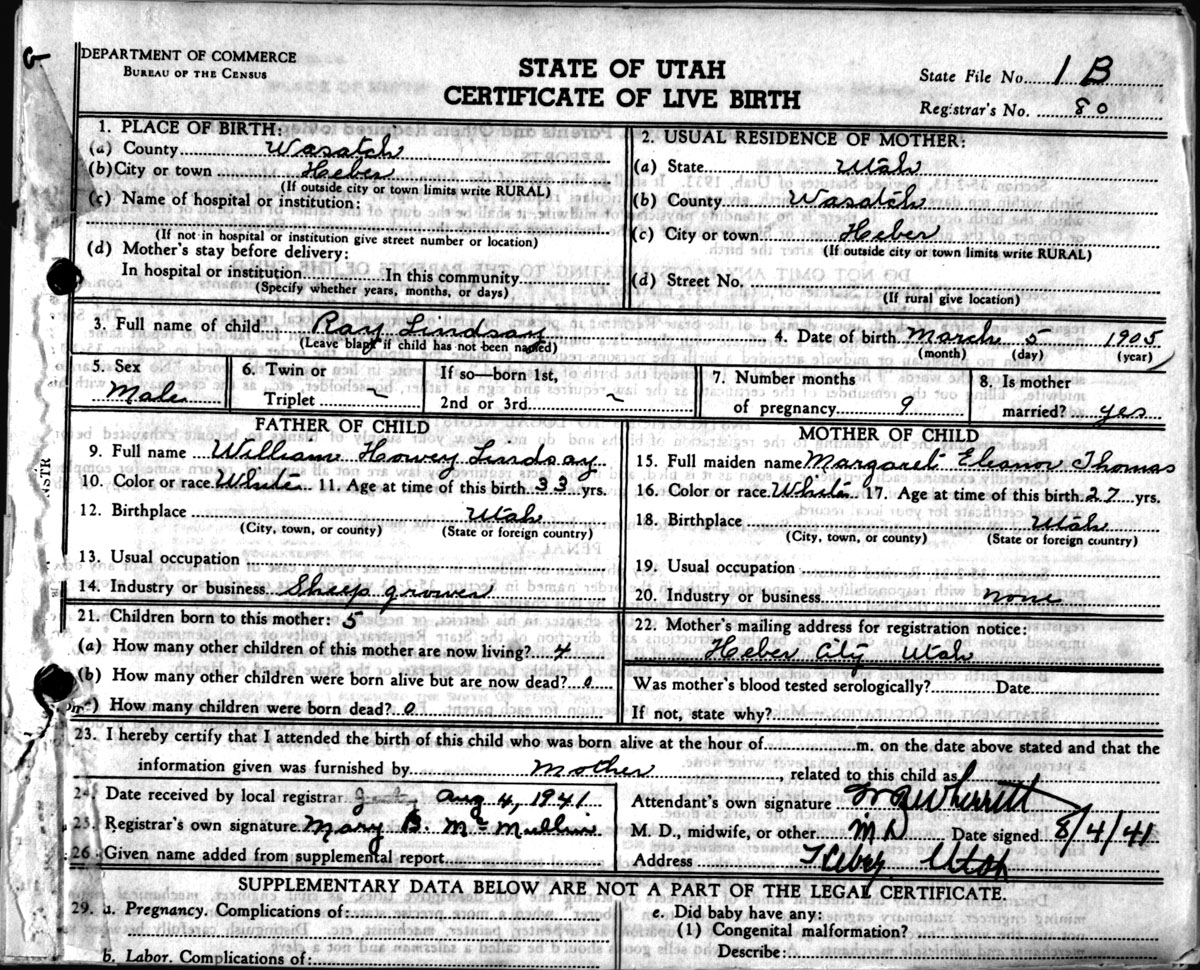 DEPARTMENT OF COMMERCE
BUREAU OF THE CENSUS
STATE OF UTAH
CERTIFICATE OF LIVE BIRTH
State File No. 1 B
Registrar's No. 80
1. PLACE OF BIRTH:
(a) County Wasatch
(b) City or town Heber
(If outside city or town limits write RURAL)
(c) Name of hospital or institution:
(If not in hospital or institution give street number or location)
(d) Mother's stay before delivery:
In hospital or institution In this community
(Specify whether years, months, or days)
2. USUAL RESIDENCE OF MOTHER:
(a) State Utah
(b) County Wasatch
(c) City or town Heber
(If outside city or town limits write RURAL)
(d) Street No.
(If rural give location)
3. Full name of child Ray Lindsay 4. Date of birth March 5 1905
(Leave blank if child has not been named) (month) (day) (year)
5. Sex Male
6. Twin or Triplet ~
If so—born 1st, 2nd or 3rd ~
7. Number months of pregnancy 9
8. Is mother married? yes
FATHER OF CHILD
9. Full name William Howey Lindsay
10. Color or race White 11. Age at time of this birth 33 yrs.
12. Birthplace Utah
(City, town, or county) (State or foreign country)
13. Usual occupation
14. Industry or business Sheep grower
MOTHER OF CHILD
15. Full maiden name Margaret Eleanor Thomas
16. Color or race White 17. Age at time of this birth 27 yrs.
18. Birthplace Utah
(City, town, or county) (State or foreign country)
19. Usual occupation
20. Industry or business none
21. Children born to this mother: 5
(a) How many other children of this mother are now living? 4
(b) How many other children were born alive but are now dead? 0
(c) How many children were born dead? 0
22. Mother's mailing address for registration notice:
Heber City Utah
Was mother's blood tested serologically? Date
If not, state why?
23. I hereby certify that I attended the birth of this child who was born alive at the hour of m. on the date above stated and that the
information given was furnished by Mother, related to this child as
24. Date received by local registrar Aug 4, 1941
25. Registrar's own signature Mary B. McMullin
26. Given name added from supplemental report
Attendant's own signature Wherritt
M. D., midwife, or other MD Date signed 8/4/41
Address Heber Utah
SUPPLEMENTARY DATA BELOW ARE NOT A PART OF THE LEGAL CERTIFICATE.
29. a. Pregnancy. Complications of:
b. Labor. Complications of:
e. Did baby have any:
(1) Congenital malformation?
Describe: